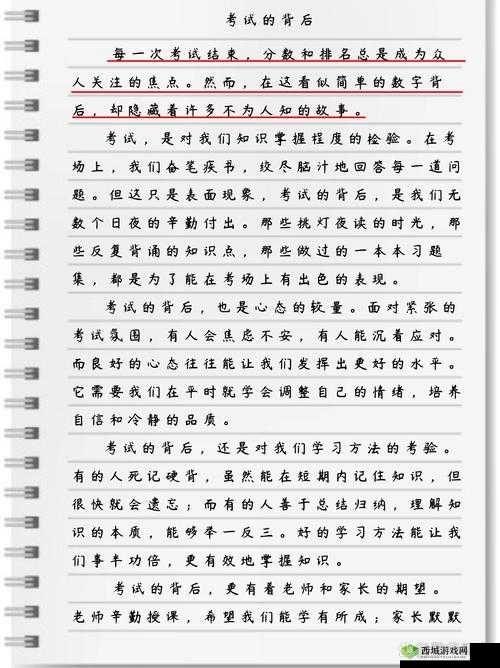 考试的背后
每一次考试结束，分数和排名总是成为众
人关注的焦点。然而，在这看似简单的数字背
后，却隐藏着许多不为人知的故事。
考试，是对我们知识掌握程度的检验。在考
场上，我们奋笔疾书，绞尽脑汁地回答每一道问
题。但这只是表面现象，考试的背后，是我们无
数个日夜的辛勤付出。那些挑灯夜读的时光，那
些反复背诵的知识点，那些做过的一本本习题
集，都是为了能在考场上有出色的表现。
考试的背后，也是心态的较量。面对紧张的
考试氛围，有人会焦虑不安，有人能沉着应对。
而良好的心态往往能让我们发挥出更好的水平。
它需要我们在平时就学会调整自己的情绪，培养
自信和冷静的品质。
考试的背后，还是对我们学习方法的考验。
有的人死记硬背，虽然能在短期内记住知识，但
很快就会遗忘；而有的人善于总结归纳，理解知
识的本质，能够举一反三。好的学习方法能让我
们事半功倍，更有效地掌握知识。
考试的背后，更有着老师和家长的期望。
老师辛勤授课，希望我们能学有所成；家长默默
西城游戏网